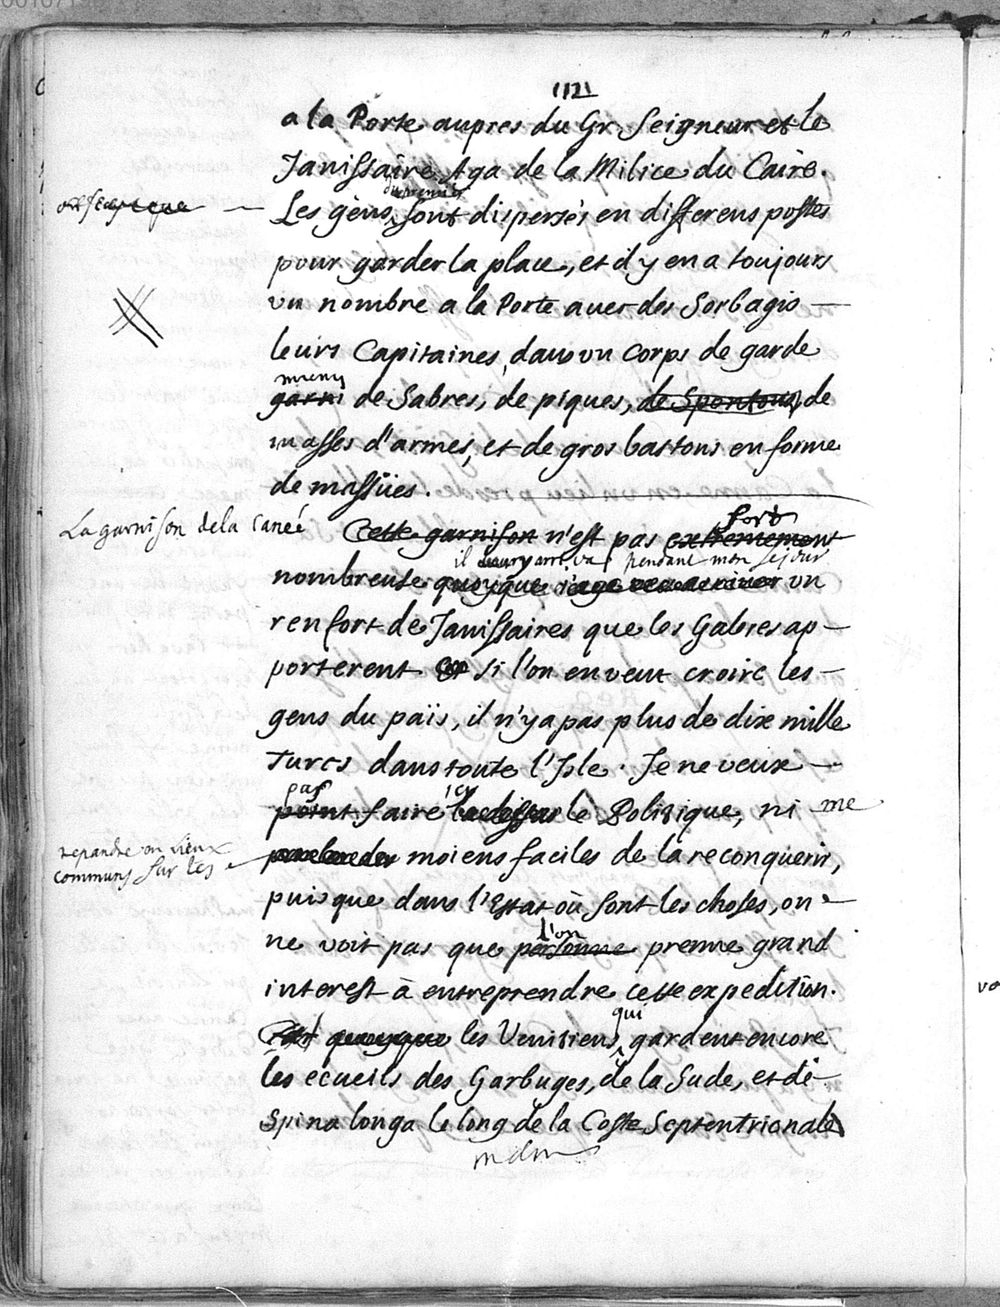 112
a la Porte aupres du Gr. Seigneur et le
Janissaire Aga de la Milice du Caire.
du dernier
Les gens sont dispersés en differens postes
pour garder la place, et il y en a toujours
un nombre a la Porte avec des Sorbagis
leurs Capitaines, dans un corps de garde
muny
garni de Sabres, de piques, de Spontons, de
masses d'armes, et de gros bastons en forme
de massües.
La garnison de la Canée
Cette garnison n'est pas extremement
fort
il arriva pendant mon sejour
nombreuse quoyque un
renfort de Janissaires que les Galeres ap-
porterent si l'on en veut croire les
gens du païs, il n'y a pas plus de dix mille
Turcs dans toute l'Isle. Je ne veux
pas
point faire icy le Politique, ni me
repandre en lieux
communs sur les
moiens faciles de la reconquerir,
puisque dans l'Estat où sont les choses, on
l'on
ne voit pas que personne prenne grand
interest à entreprendre cette expedition.
qui
quoyque les Venitiens gardent encore
les écueils des Garbuges, de la Sude, et de
Spina longa le long de la Coste Septentrionale